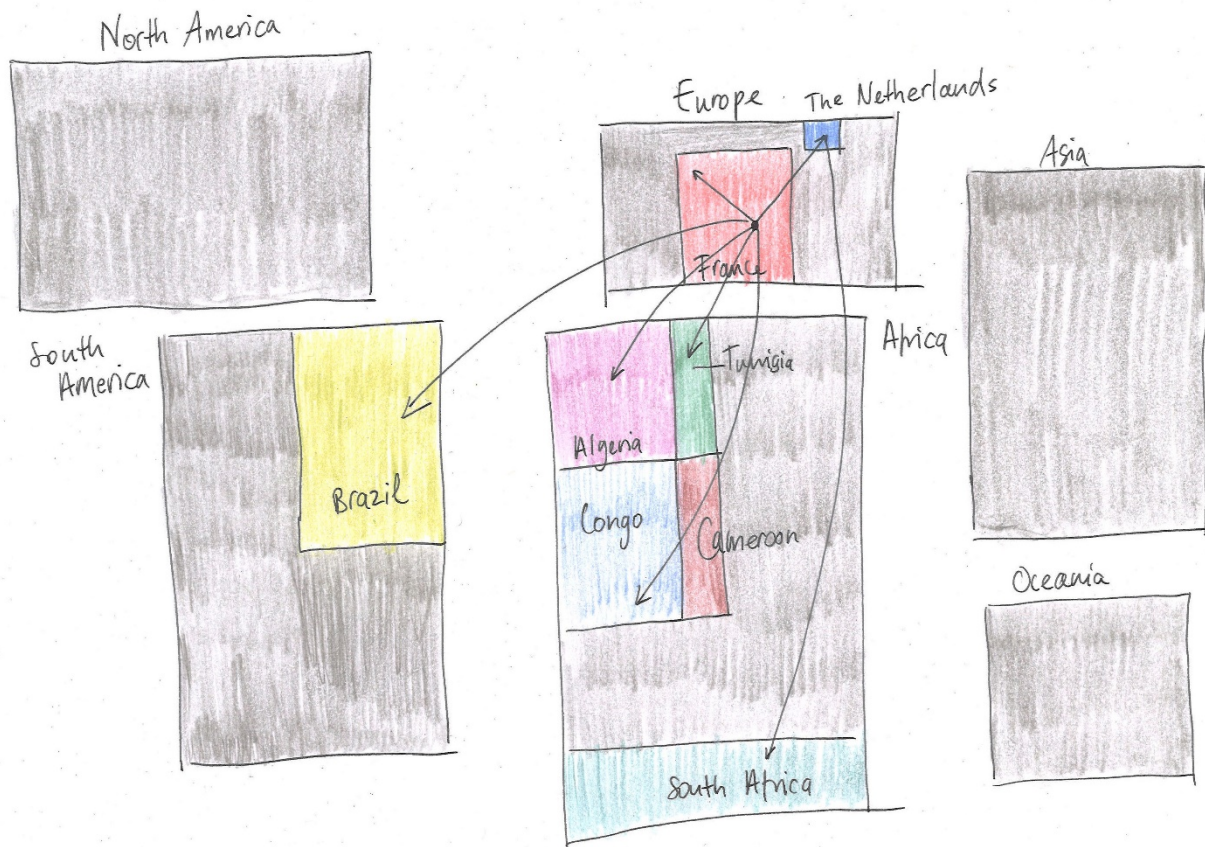 North America
Europe
The Netherlands
Asia
France
South
America
Africa
Tunisia
Algeria
Brazil
Congo
Cameroon
Oceania
South Africa